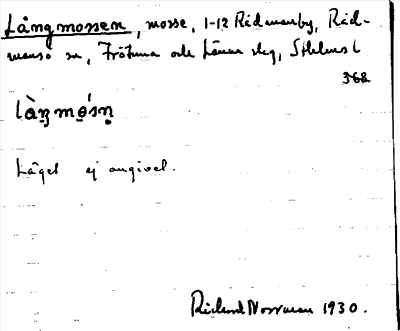 Långmossen, mosse, 1-12 Rådmanby, Råd-
mansö sn, Frötuna och Länna slg, Sthlms l
368
làŋmǫ́sn̥
Läget ej angivet.
Rickard Norrman 1930.